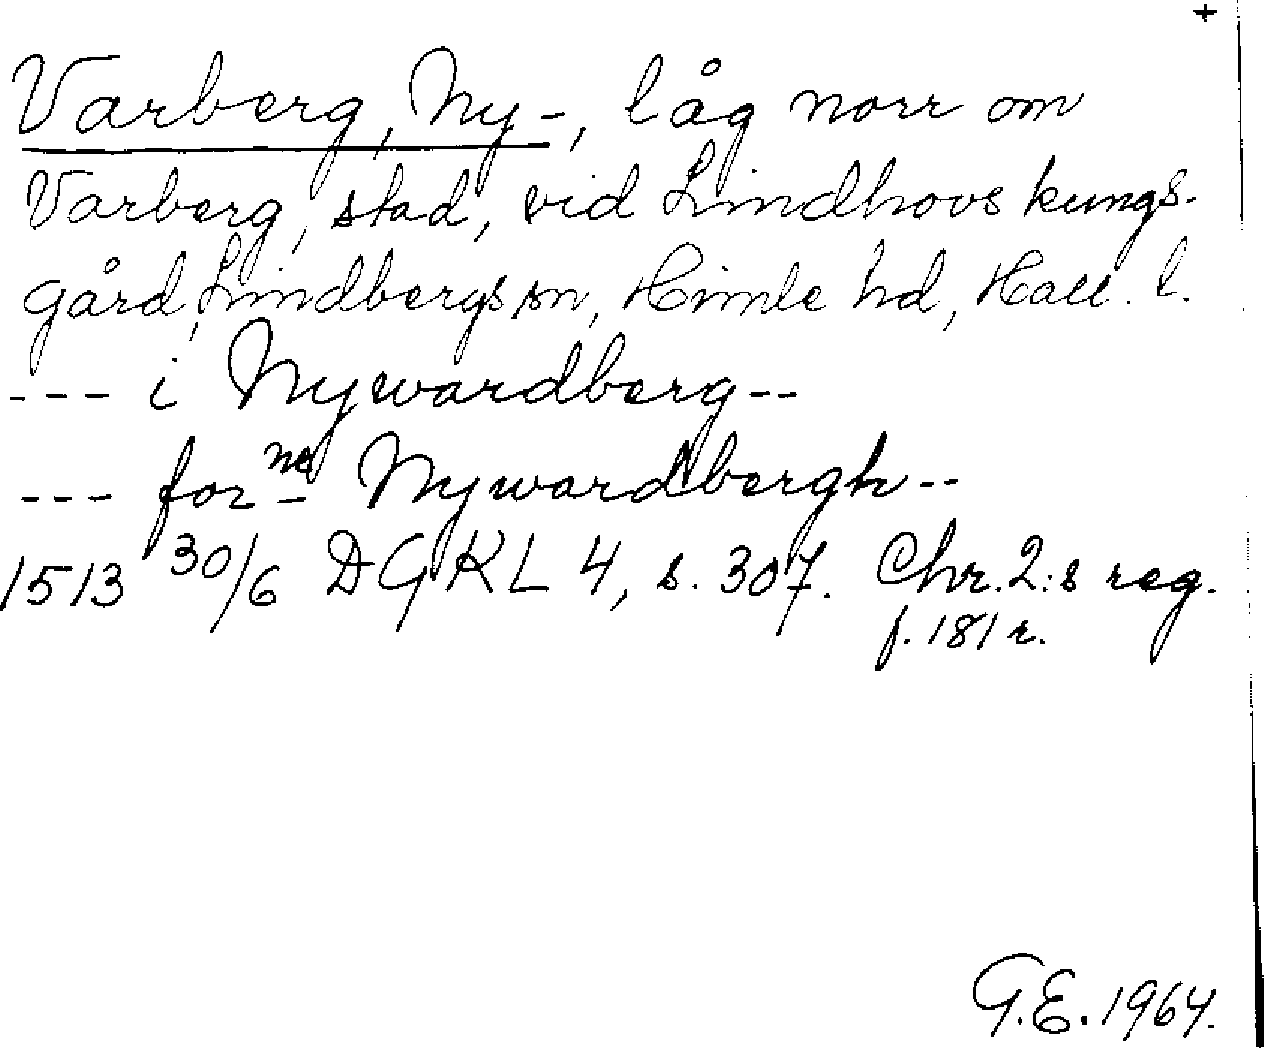 +
Varberg, Ny-, låg norr om
Varberg, stad, vid Lindhovs kungs-
gård, Lindbergs sn, Himle hd, Hall. l.
--- i Nywardberg--
--- forne Nywardbergh--
1513 30/6 DGKL 4, s. 307. Chr. 2:s reg.
f. 181 r.
G.E. 1964.